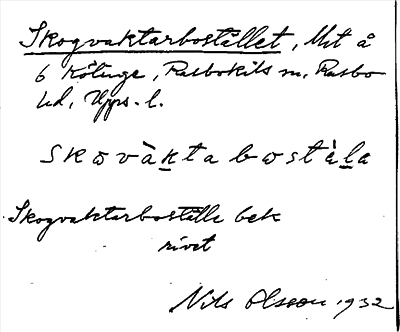 Skogvaktarbostället, Utt å
6 Kölinge, Rasbokils sn, Rasbo
hd, Upps. l.
skovàkta bostä̀la
Skogvaktarboställe bek
rivet
Nils Olsson 1932